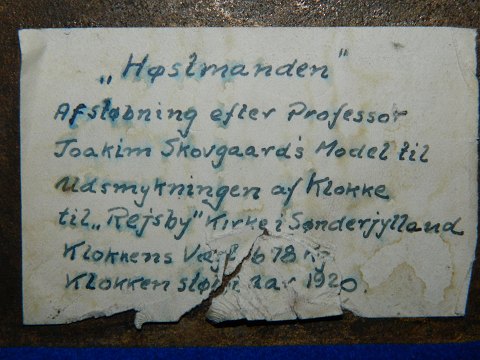 „Høstmanden"
Afstøbning efter Professor
Joakim Skovgaard's Model til
Udsmykningen af Klokke
til „Rejsby" Kirke i Sønderjylland
Klokkens Vægt 678 kg.
Klokken støbt aar 1920.